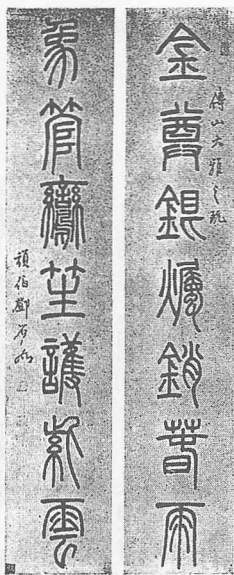 傅山大雅之玩
金尊銀燭銷春雨
象管鸞笙護紫雲
頑伯鄧石如